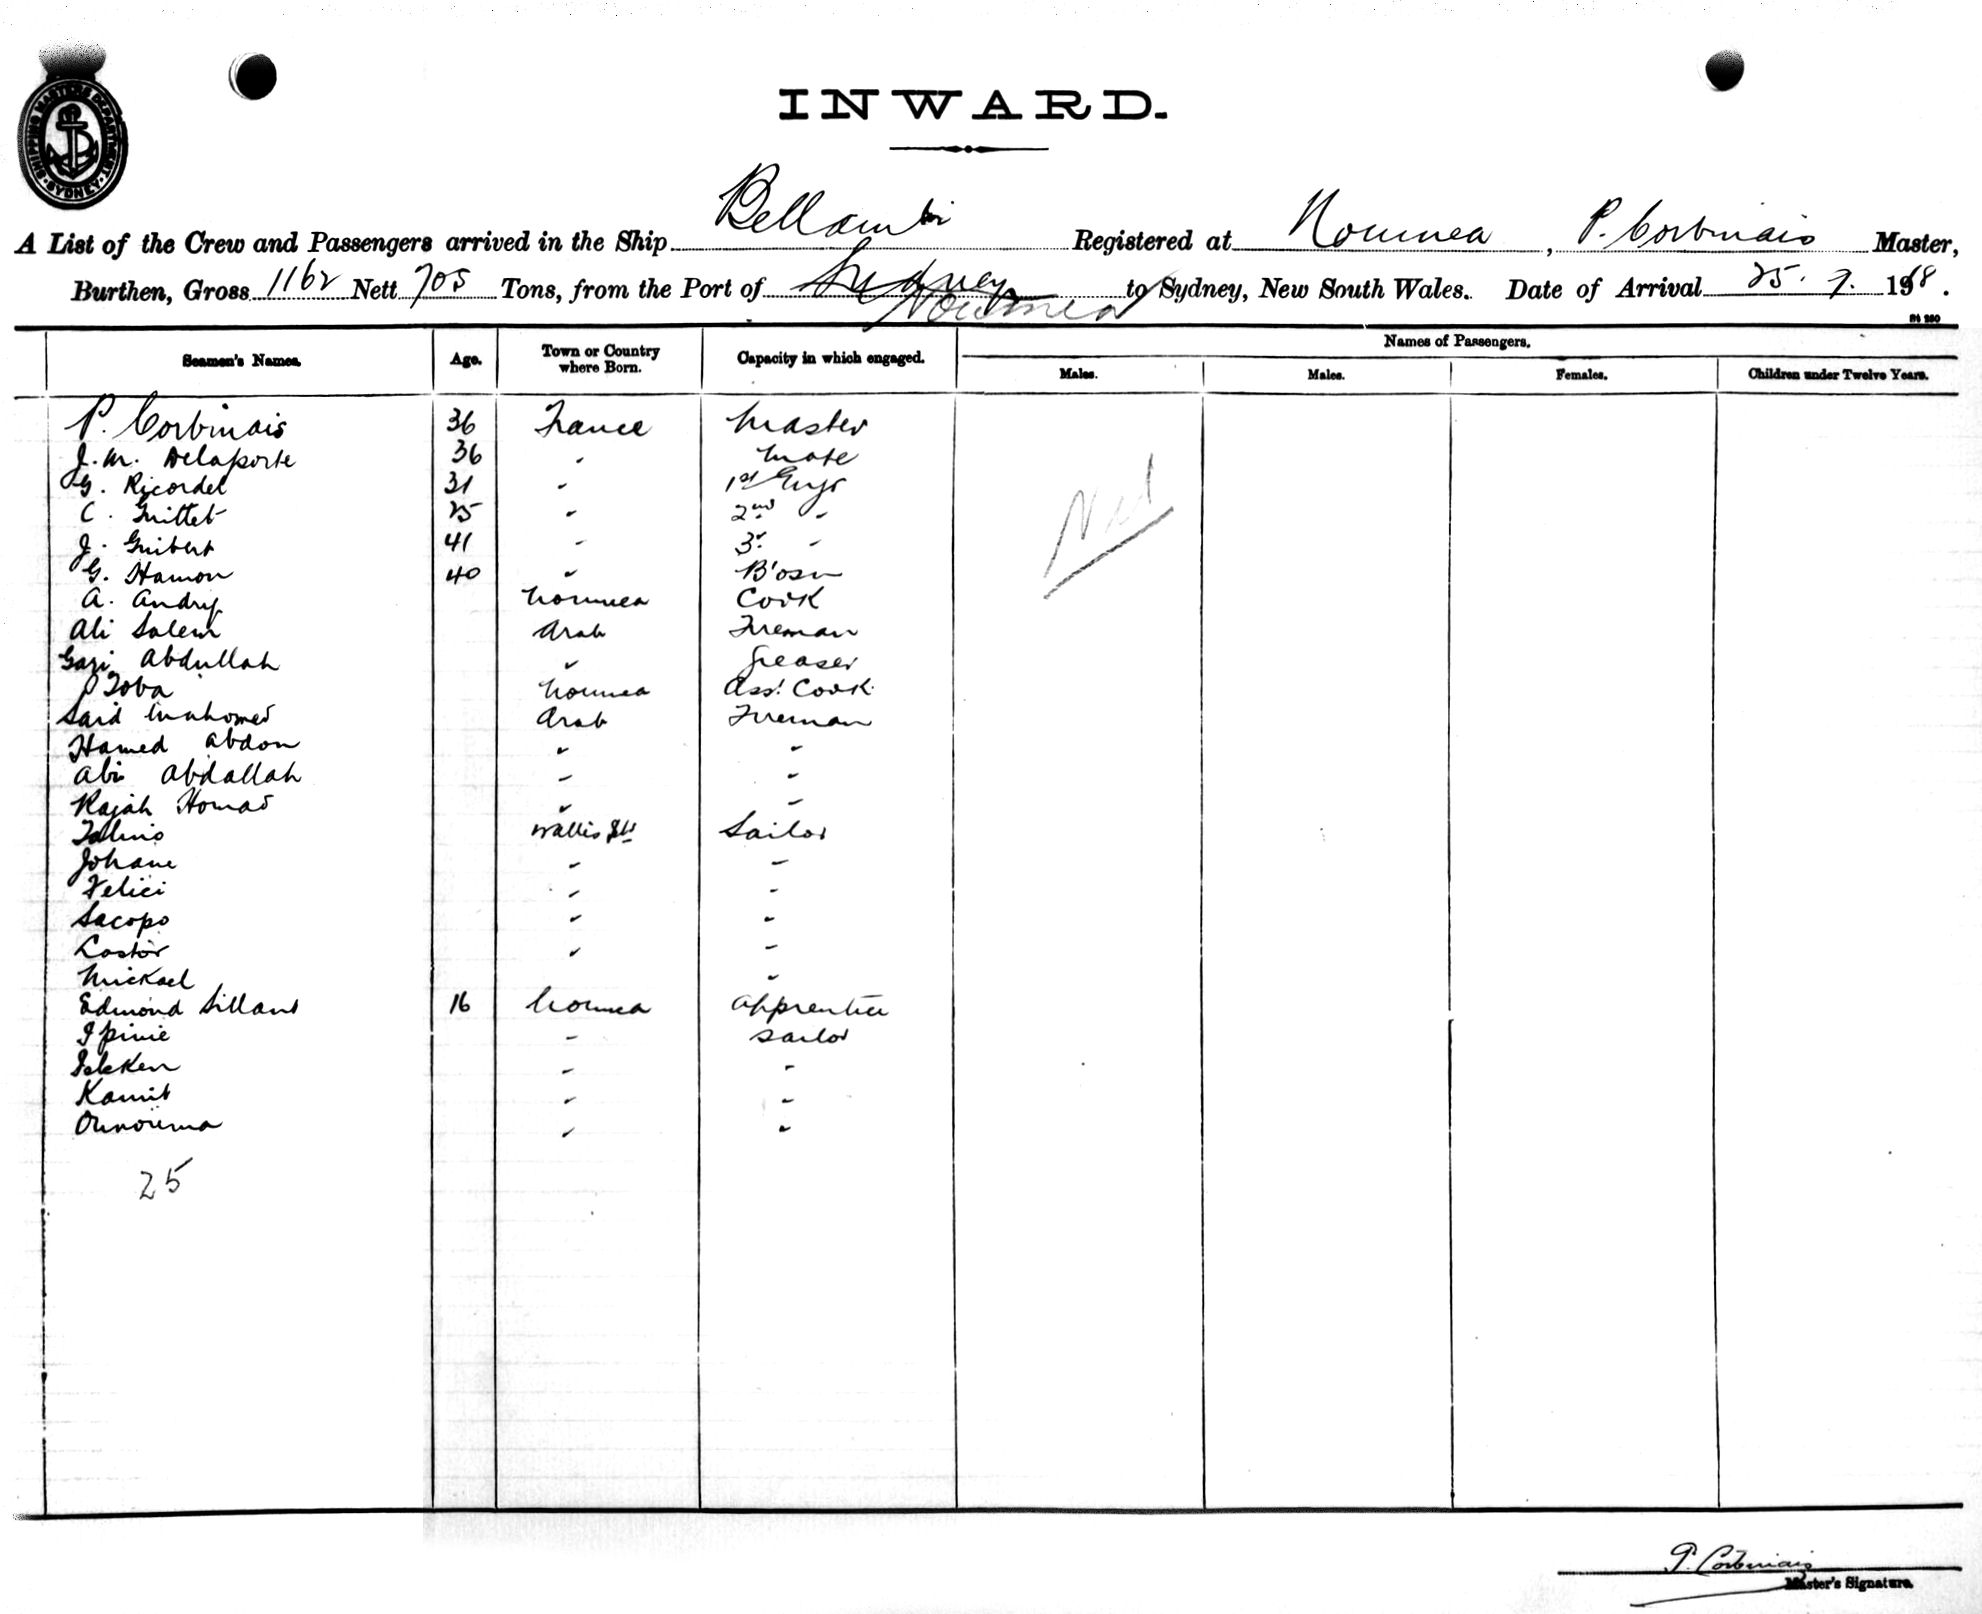 SHIPPING MASTERS DEPARTMENT
SYDNEY
INWARD.
A List of the Crew and Passengers arrived in the Ship Bellambi Registered at Noumea, P. Corbinais Master,
Burthen, Gross 1162 Nett 705 Tons, from the Port of Sydney Noumea to Sydney, New South Wales. Date of Arrival 25. 7. 1918.
St 280
Seamen's Names. Age. Town or Country where Born. Capacity in which engaged. Names of Passengers.
Males. Males. Females. Children under Twelve Years.
P. Corbinais 36 France Master
J. M. Delaporte 36 " Mate
G. Ricordel 31 " 1st Engr
C. Guittet 25 " 2nd "
J. Guibert 41 " 3r "
G. Hamon 40 " B'osn
A. Noumea Cook
Ali Salem Arab Fireman
Gazi Abdullah " Greaser
Toba Noumea Asst Cook
Said Mahomed Arab Fireman
Hamed Abdou " "
Abi Abdallah " "
Rajah Homad " "
Wallis Isls Sailor
Johane " "
Felici " "
Sacopo " "
Castor " "
Mickael "
Edmond Sillant 16 Noumea Apprentice
Ipinie " Sailor
" "
Kamit " "
" "
Nil
25
P. Corbinais
Master's Signature.